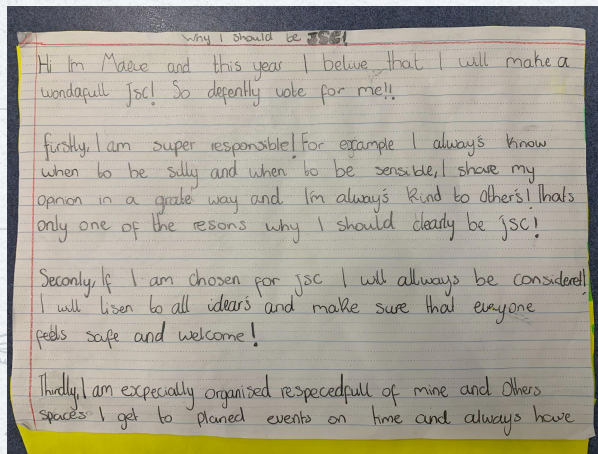 Why I should be JSC!
Hi Im Maeve and this year I belive that I will make a
wondafull jsc! So defently vote for me!!
firstly, I am super responsible! For example I always know
when to be silly and when to be sensible, I share my
opnion in a grate way and I'm always kind to other's! Thats
only one of the resons why I should clearly be jsc!
Seconly, If I am chosen for jsc I will allways be considered!
I will lisen to all idear's and make sure that everyone
feels safe and welcome!
Thirdly, I am expecially organised respecedfull of mine and others
spaces I get to planed events on time and always have